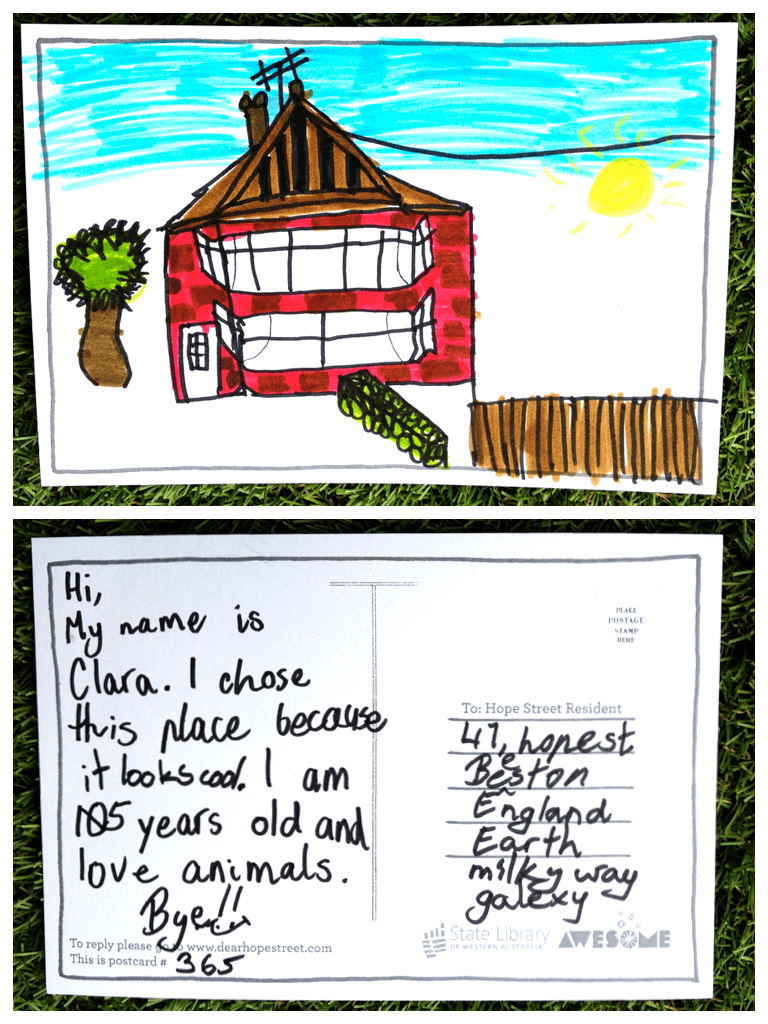 Hi,
My name is
Clara. I chose
this place because
it looks cool. I am
105 years old and
love animals.
Bye!!
To reply please go to www.dearhopestreet.com
This is postcard # 365
PLACE
POSTAGE
STAMP
HERE
To: Hope Street Resident
47, hopest
Beeston
England
Earth
milky way
galexy
State Library
OF WESTERN AUSTRALIA
AWESOME